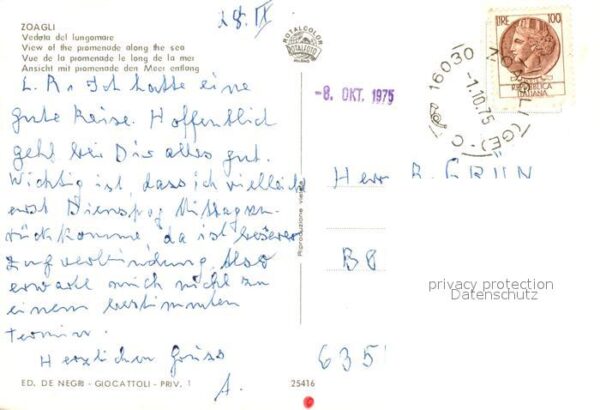 28. IX
ZOAGLI
Veduta del lungomare
View of the promenade along the sea
Vue de la promenade le long de la mer
Ansicht mit promenade den Meer entlang
L. R. Ich hatte eine
gute Reise. Hoffentlich
geht bei Dir alles gut.
Wichtig ist, dass ich vielleicht
erst Dienstag Mittag zu-
rückkomme, da ist besserer
Zugverbindung. Also
erwarte mich nicht zu
einem bestimmten
Termin.
Herzlichen Gruss
A.
ED. DE NEGRI - GIOCATTOLI - PRIV. 1
25416
ROTALCOLOR
ROTALFOTO
MILANO
Riproduzione vietata
-8. OKT. 1975
16030 ZOAGLI (GE) - C
-1.10.75
LIRE 100
REPUBBLICA
ITALIANA
Herr R. GRÜN
88
635
privacy protection
Datenschutz